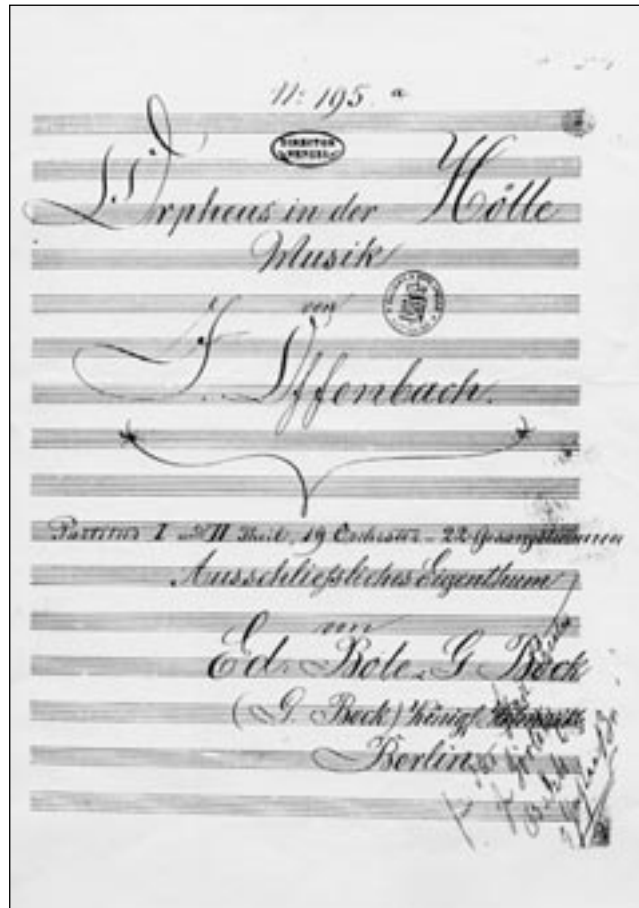 No: 195. a
DIRECTOR
WENZEL
Orpheus in der Hölle
Musik
von
J. Offenbach.
Partitur I und II Theil, 19 Orchester - 22 Gesangstimmen
Ausschließliches Eigenthum
von
Ed. Bote & G. Bock
(G. Bock) Königl.
Berlin